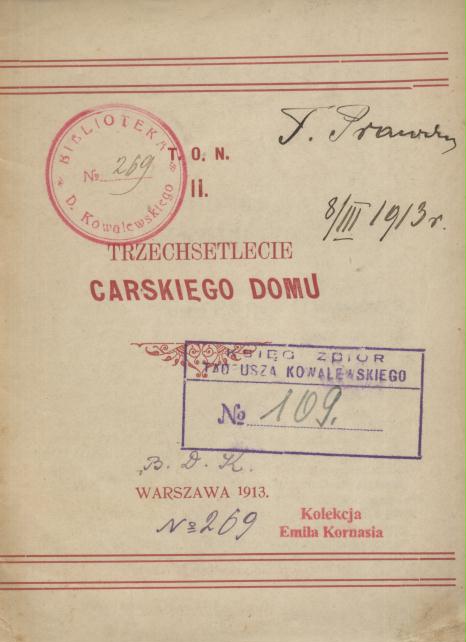 BIBLIOTEKA
№ 269
D. Kowalewskiego
T. O. N.
II.
8/III 1913 r.
TRZECHSETLECIE
CARSKIĘGO DOMU
KSIĘG ZBIOR
TADEUSZA KOWALEWSKIEGO
№ 109.
B. D. K.
WARSZAWA 1913.
№ 269
Kolekcja
Emila Kornasia